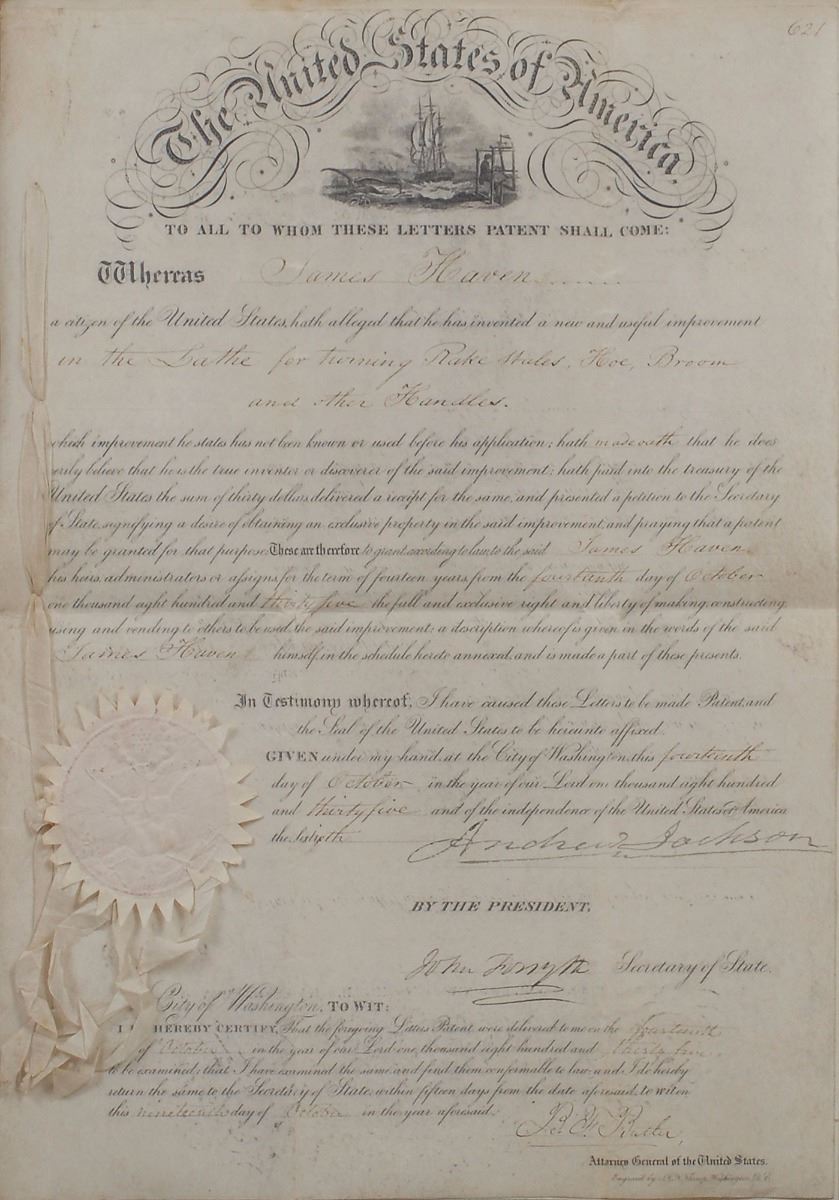 621
The United States of America
TO ALL TO WHOM THESE LETTERS PATENT SHALL COME:
Whereas James Haven
a citizen of the United States, hath alleged that he has invented a new and useful improvement
in the Lathe for turning Rake Stales, Hoe, Broom
and other Handles.
which improvement he states has not been known or used before his application; hath made oath that he does
verily believe that he is the true inventor or discoverer of the said improvement; hath paid into the treasury of the
United States the sum of thirty dollars, delivered a receipt for the same, and presented a petition to the Secretary
of State, signifying a desire of obtaining an exclusive property in the said improvement, and praying that a patent
may be granted for that purpose. These are therefore to grant, according to law, to the said James Haven
his heirs, administrators or assigns, for the term of fourteen years, from the fourteenth day of October
one thousand eight hundred and thirty five the full and exclusive right and liberty of making, constructing,
using and vending to others to be used, the said improvement: a description whereof is given in the words of the said
James Haven himself, in the schedule hereto annexed, and is made a part of these presents.
In Testimony whereof, I have caused these Letters to be made Patent, and
the Seal of the United States to be hereunto affixed.
GIVEN under my hand, at the City of Washington, this fourteenth
day of October in the year of our Lord one thousand eight hundred
and thirty five and of the independence of the United States of America
the Sixtieth
Andrew Jackson
BY THE PRESIDENT.
John Forsyth Secretary of State.
City of Washington, TO WIT:
I HEREBY CERTIFY, That the foregoing Letters Patent were delivered to me on the fourteenth
of October in the year of our Lord one thousand eight hundred and thirty five
to be examined; that I have examined the same, and find them conformable to law; and I do hereby
return the same to the Secretary of State, within fifteen days from the date aforesaid, to wit: on
this nineteenth day of October in the year aforesaid.
B. F. Butler,
Attorney General of the United States.
Engraved by